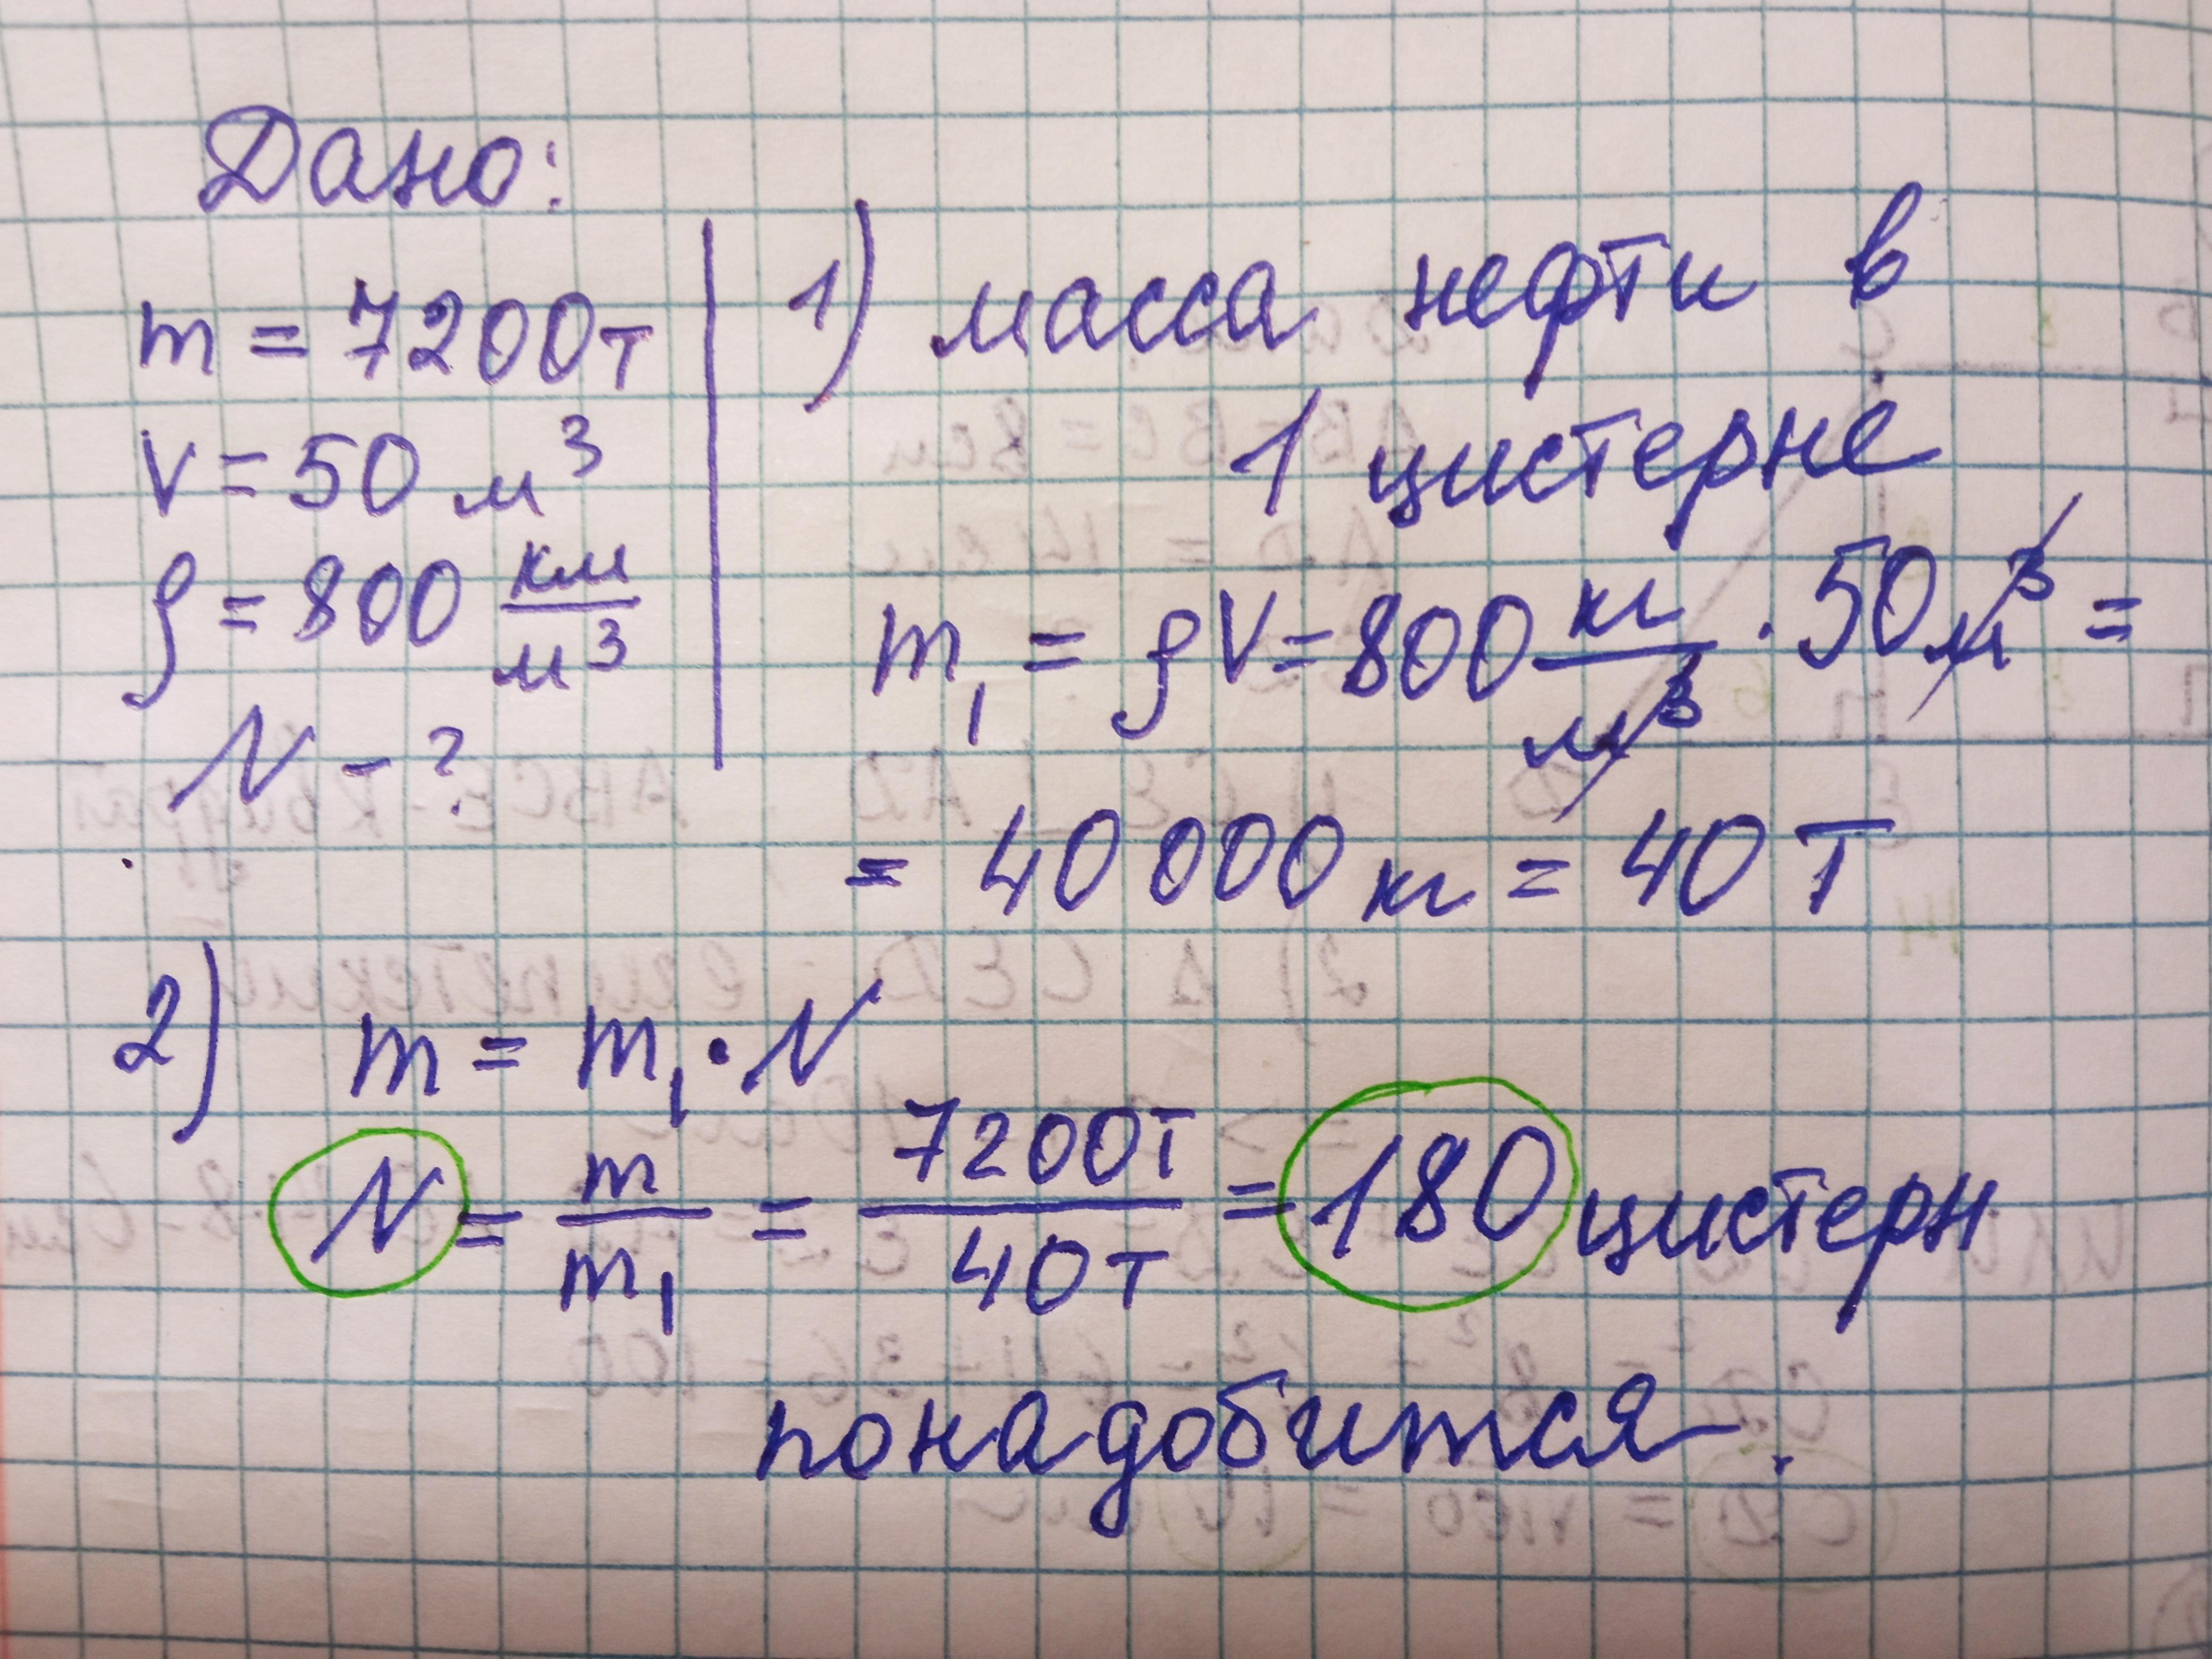 Дано:
m = 7200т
V = 50 м³
ρ = 800 км/м³
N - ?
1) масса нефти в
1 цистерне
m₁ = ρV = 800 кг/м³ · 50 м³ =
= 40 000 кг = 40 Т
2) m = m₁ · N
N = m/m₁ = 7200т/40т = 180 цистерн
понадобится.